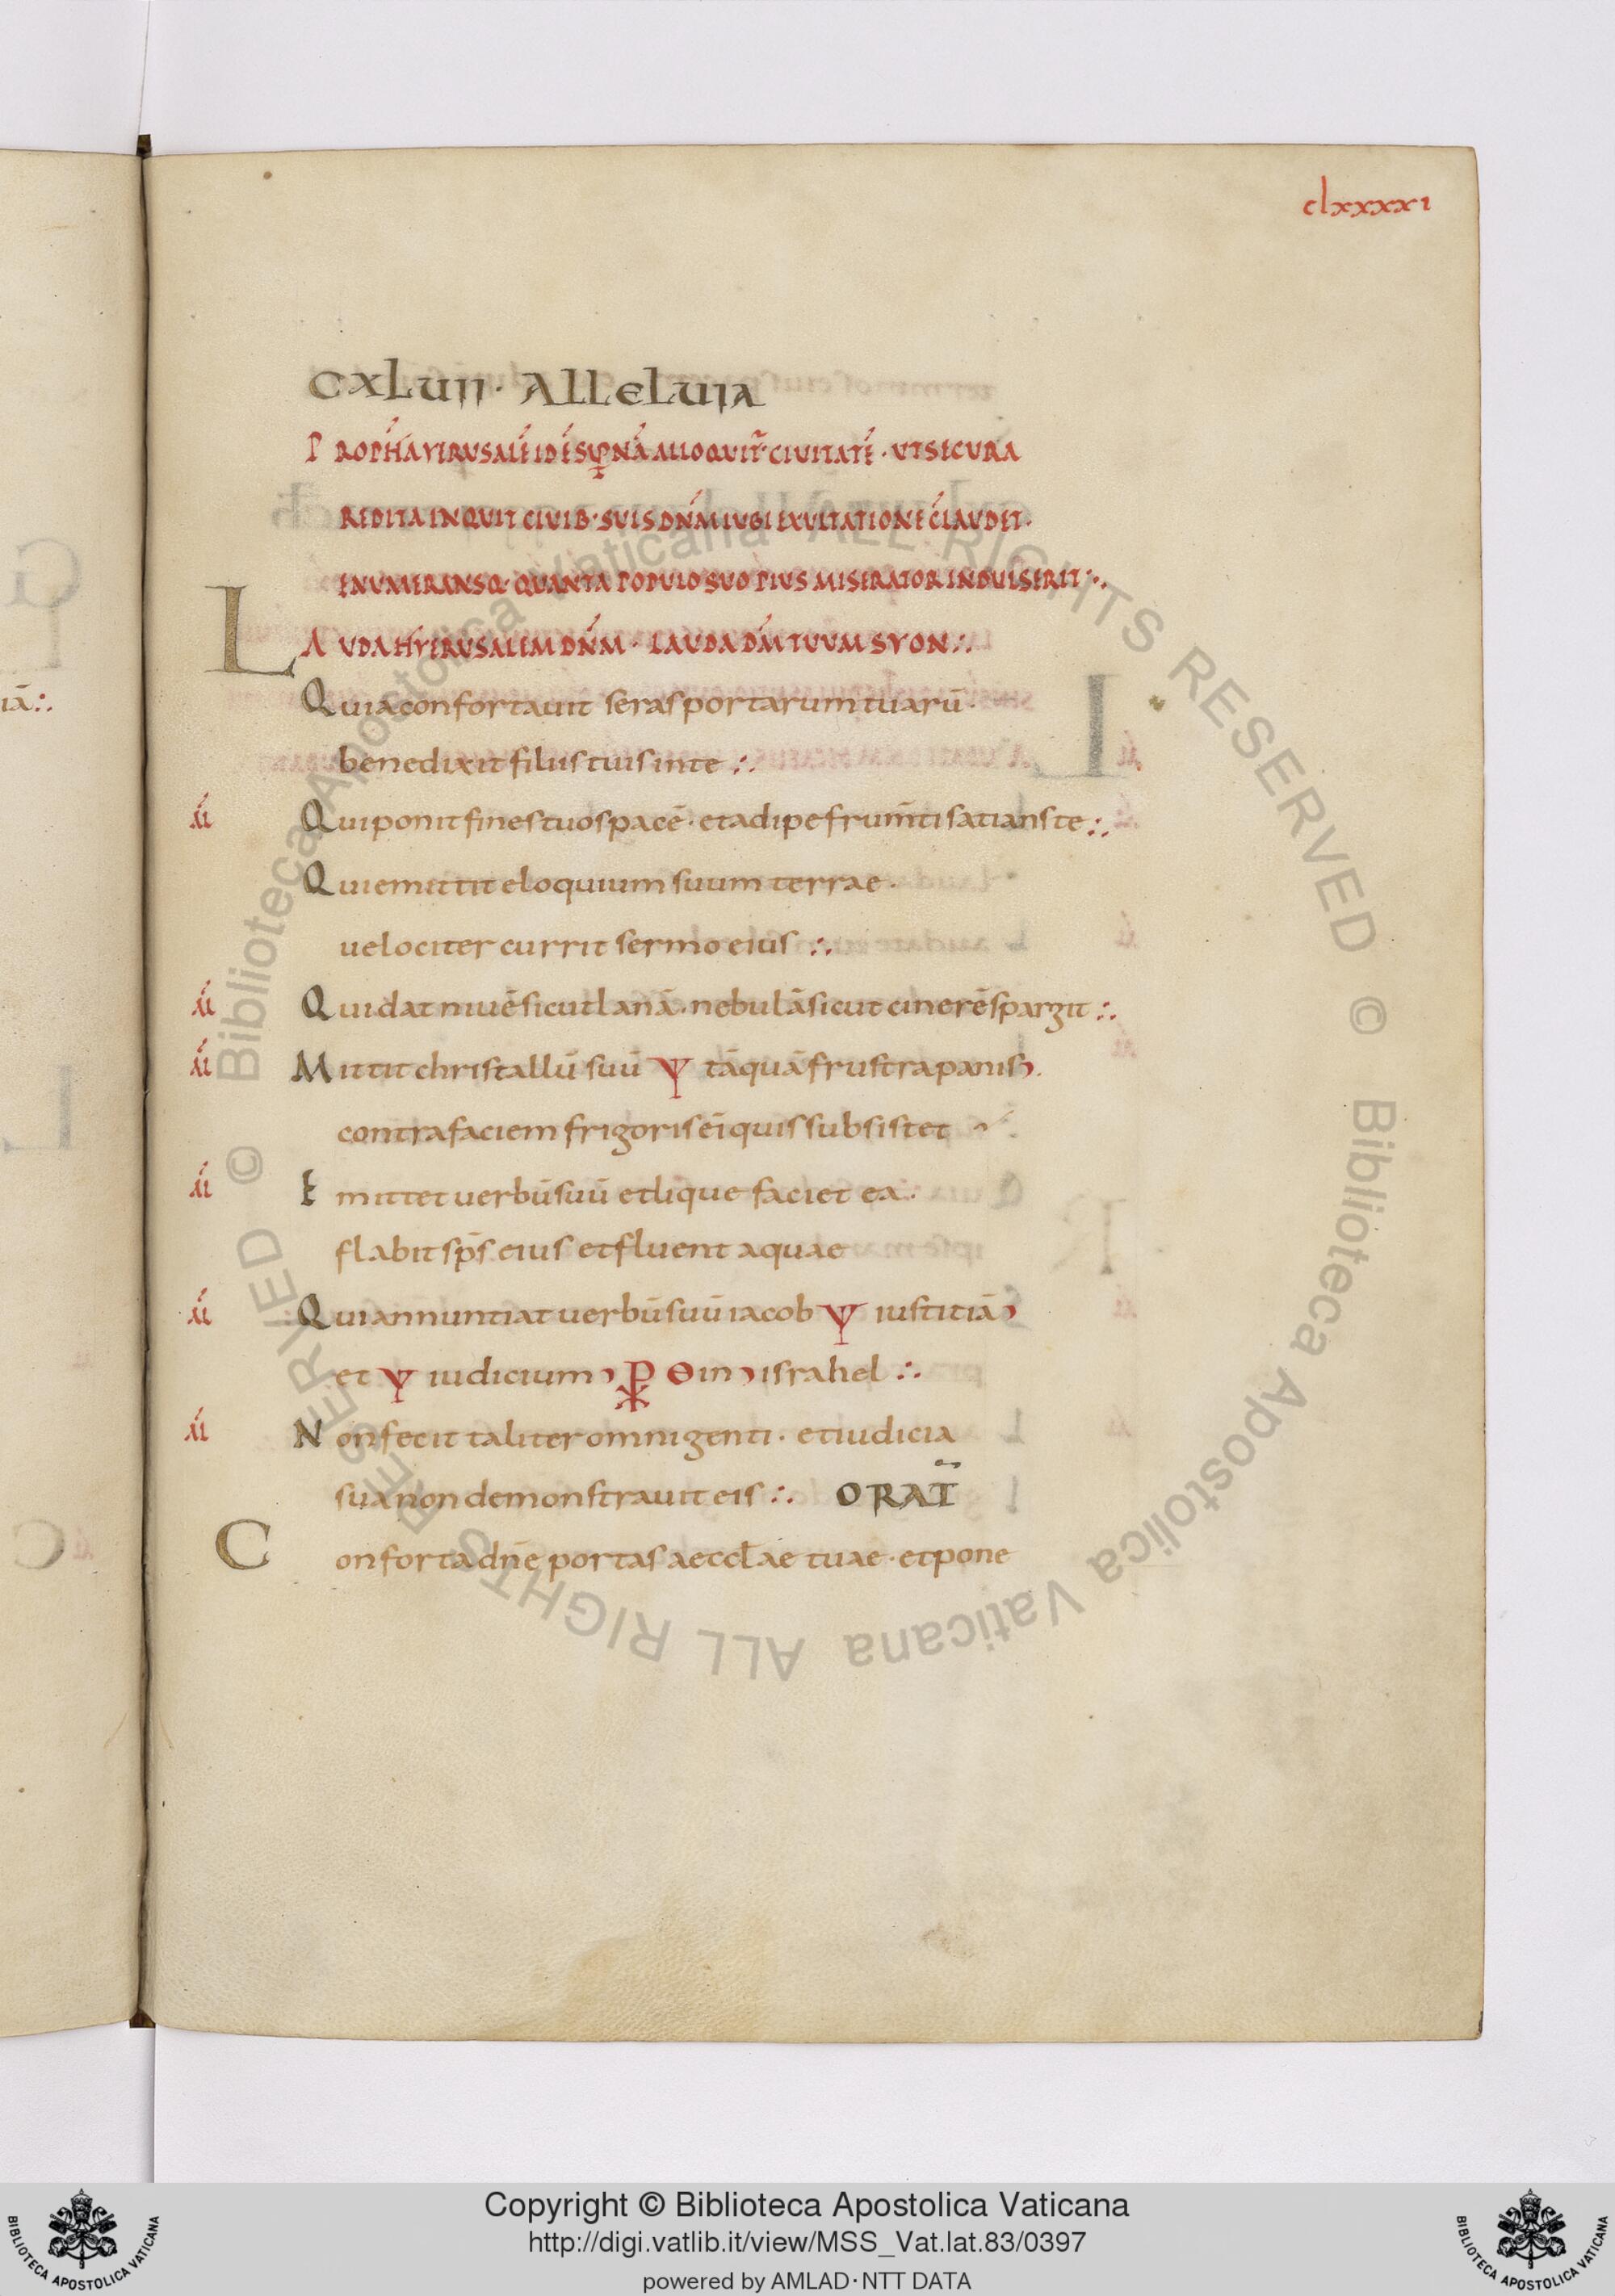 clxxxxi
CXLUII · Alleluia
PROPHA YIRUSALĒ IDĒ SUPNĀ ALLOQUIT̃ CIUITATĒ · UT SECURA
REDITA INQUIT CIUIB· SUIS DN̄M IUGI EXULTATIONE CLAUDET·
ENUMERANSQ· QUANTA POPULO SUO PIUS MISERATOR INDULSERIT :·
LAUDA HYIERUSALEM DN̄M · LAUDA DM̄ TUUM SYON :·
Quia confortauit seras portarum tuarū ·
benedixit filiis tuis in te :·
Qui ponit fines tuos pacē · et adipe frum̄ti satians te :·
Qui emittit eloquium suum terrae ·
uelociter currit sermo eius :·
Qui dat niuē sicut lanā · nebulā sicut cinerē spargit :·
Mittit christallū suū Ψ tāquā frustra panis ·
contra faciem frigoris ei quis subsistet
Emittet uerbū suū et lique faciet ea ·
flabit sp̄s eius et fluent aquae
Qui annuntiat uerbū suū iacob Ψ iustitiā
et Ψ iudicium ⳩ Θ in israhel :·
Non fecit taliter omni genti · et iudicia
sua non demonstrauit eis :· ORAT̄
Conforta dn̄e portas aeccl̄ae tuae · et pone
iā :·
Copyright © Biblioteca Apostolica Vaticana
http://digi.vatlib.it/view/MSS_Vat.lat.83/0397
powered by AMLAD·NTT DATA
BIBLIOTECA APOSTOLICA VATICANA
BIBLIOTECA APOSTOLICA VATICANA
© Biblioteca Apostolica Vaticana ALL RIGHTS RESERVED © Biblioteca Apostolica Vaticana ALL RIGHTS RESERVED